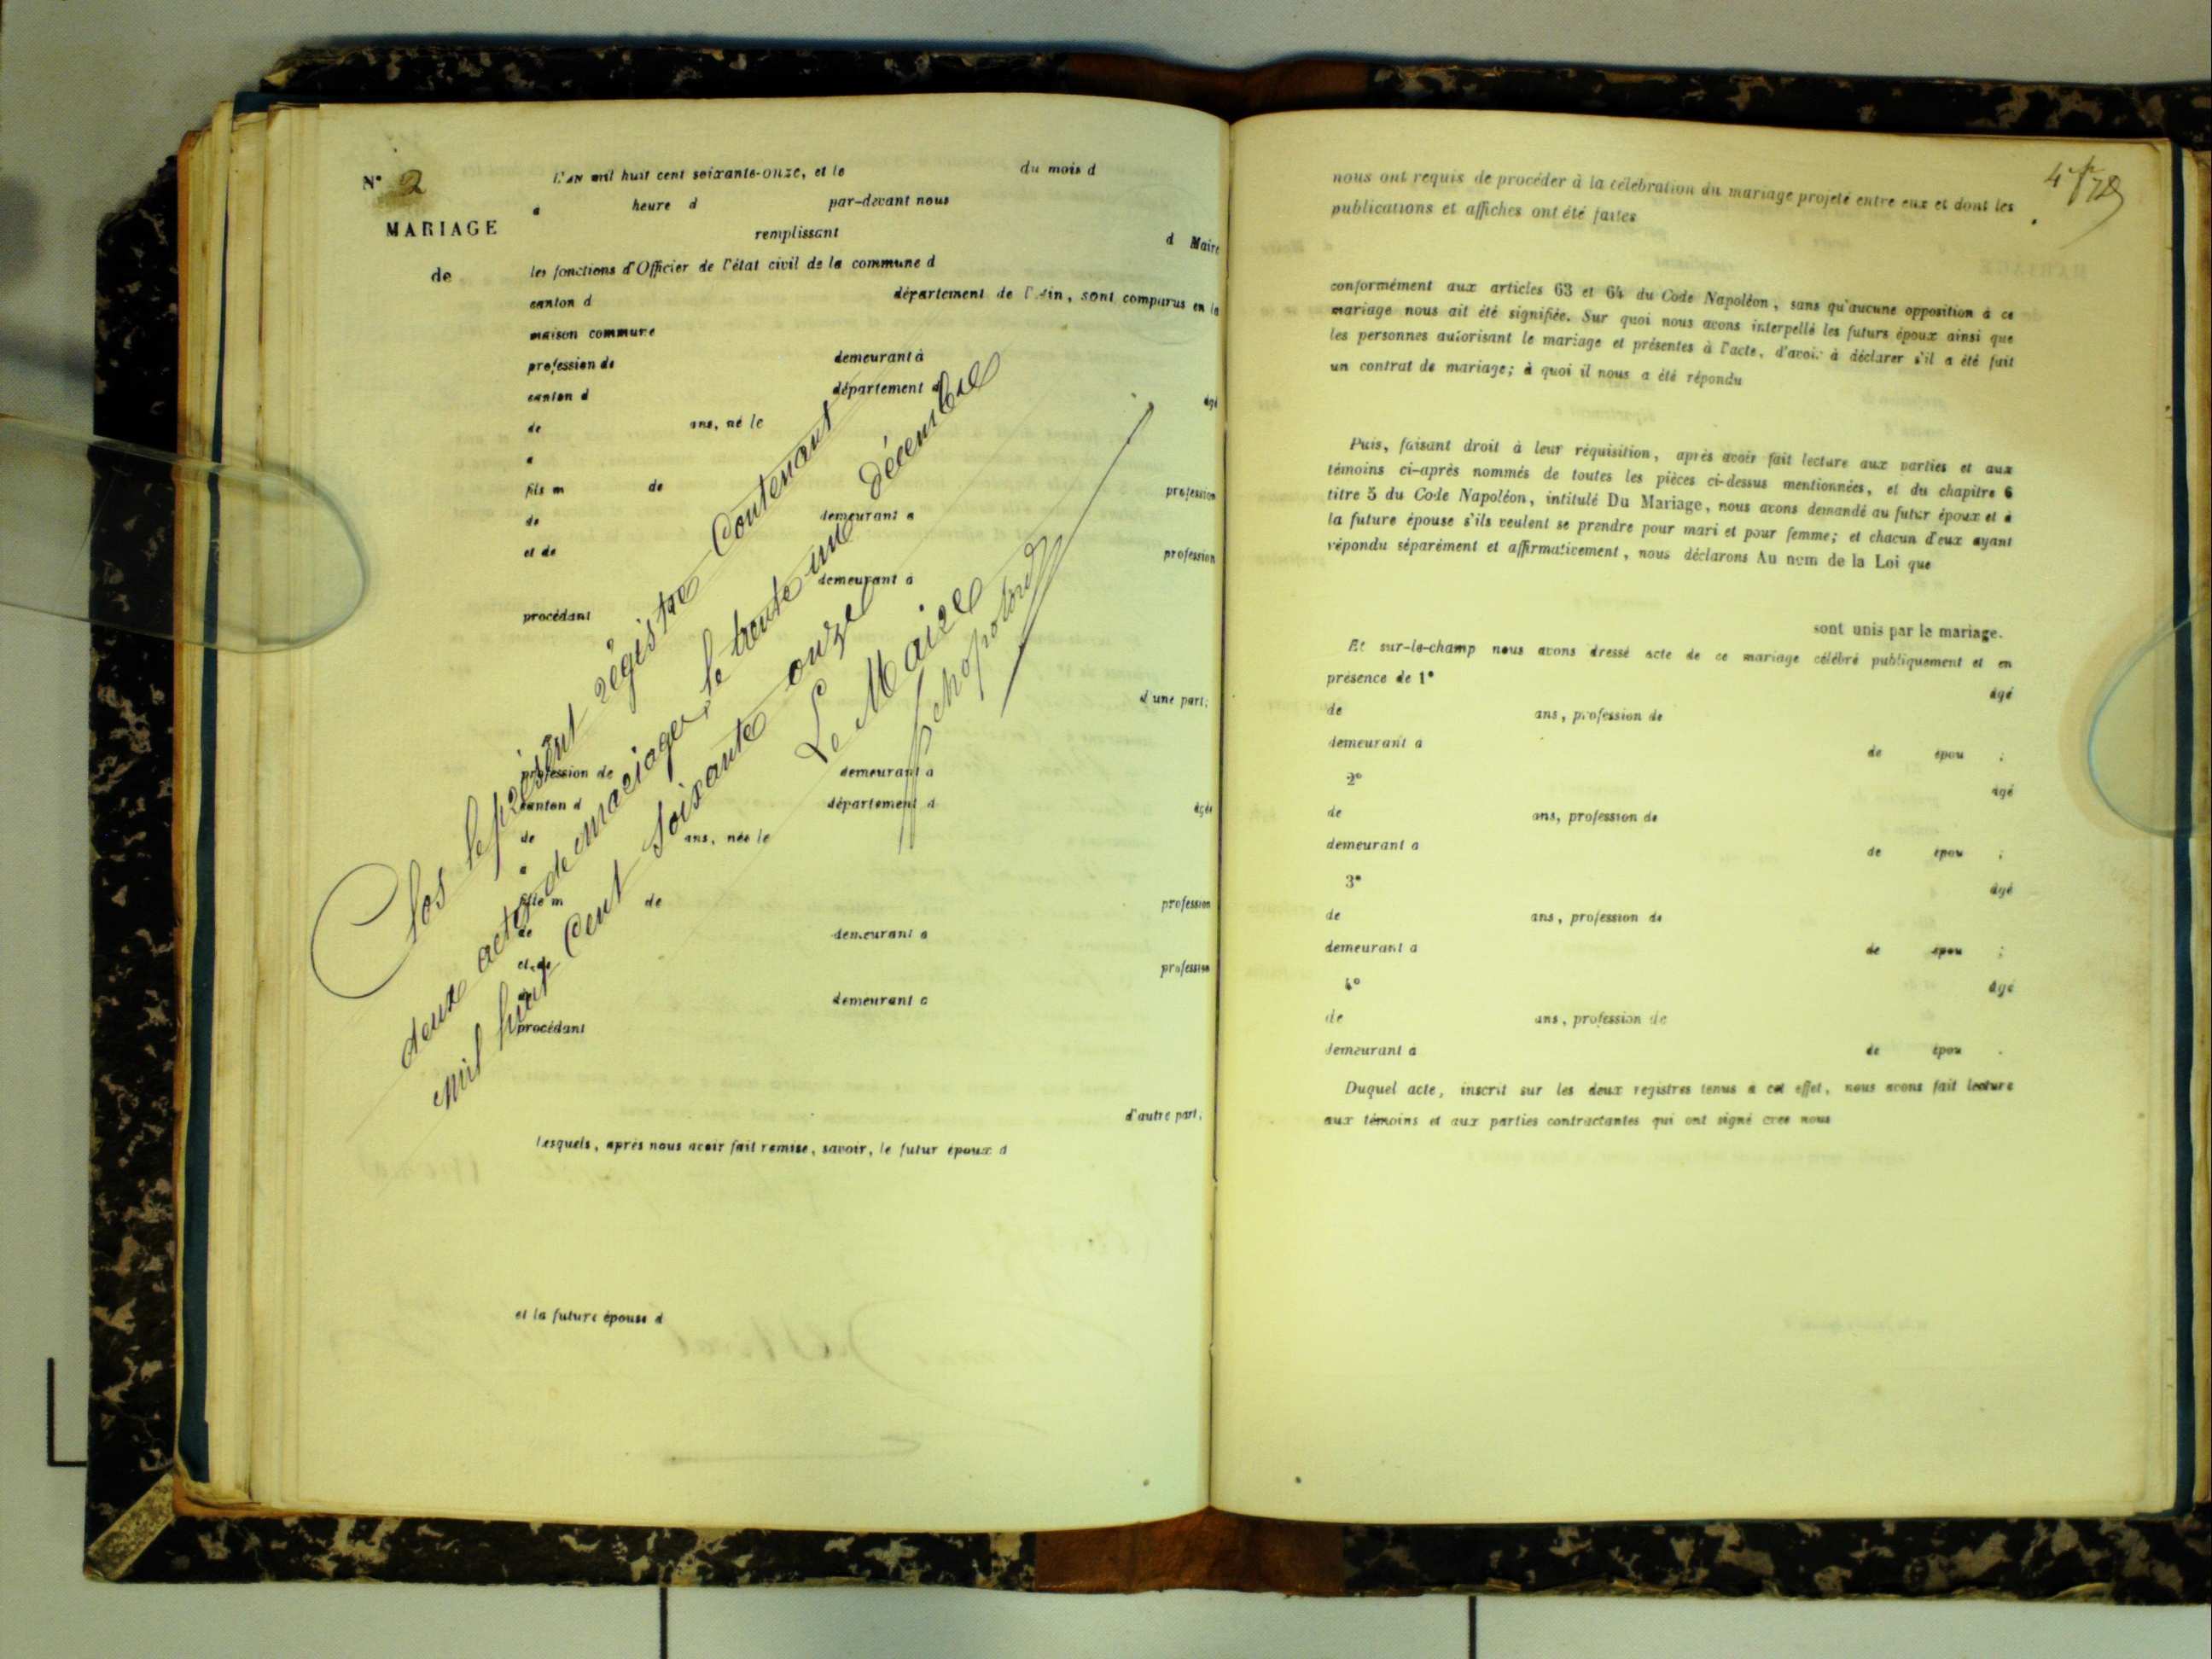 N° 2
MARIAGE
de
L'AN mil huit cent soixante-onze, et le du mois d
a heure d par-devant nous
remplissant d Maire
les fonctions d'Officier de l'état civil de la commune d
canton d département de l'Ain, sont comparus en la
maison commune
profession de demeurant à
canton d département d âgé
de ans, né le
a
fils m de profession
de demeurant a
et de profession
demeurant a
procédant
d'une part;
profession de demeurant a
canton d département d âgée
de ans, née le
a
fille m de profession
de demeurant a
et de profession
demeurant a
procédant
d'autre part,
Lesquels, après nous avoir fait remise, savoir, le futur époux d
et la future épouse d
Clos le présent régistre Contenant
deux actes de mariage, le trente un décembre
mil huit Cent Soixante onze
Le Maire
nous ont requis de procéder à la célébration du mariage projeté entre eux et dont les
publications et affiches ont été faites
conformément aux articles 63 et 64 du Code Napoléon, sans qu'aucune opposition à ce
mariage nous ait été signifiée. Sur quoi nous avons interpellé les futurs époux ainsi que
les personnes autorisant le mariage et présentes à l'acte, d'avoir à déclarer s'il a été fait
un contrat de mariage; à quoi il nous a été répondu
Puis, faisant droit à leur réquisition, après avoir fait lecture aux parties et aux
témoins ci-après nommés de toutes les pièces ci-dessus mentionnées, et du chapitre 6
titre 5 du Code Napoléon, intitulé Du Mariage, nous avons demandé au futur époux et à
la future épouse s'ils veulent se prendre pour mari et pour femme; et chacun d'eux ayant
répondu séparément et affirmativement, nous déclarons Au nom de la Loi que
sont unis par le mariage.
Et sur-le-champ nous avons dressé acte de ce mariage célébré publiquement et en
présence de 1° âgé
de ans, profession de
demeurant a de épou ;
2° âgé
de ans, profession de
demeurant a de épou ;
3° âgé
de ans, profession de
demeurant a de épou ;
4° âgé
de ans, profession de
demeurant a de épou .
Duquel acte, inscrit sur les deux registres tenus a cet effet, nous avons fait lecture
aux témoins et aux parties contractantes qui ont signé avec nous